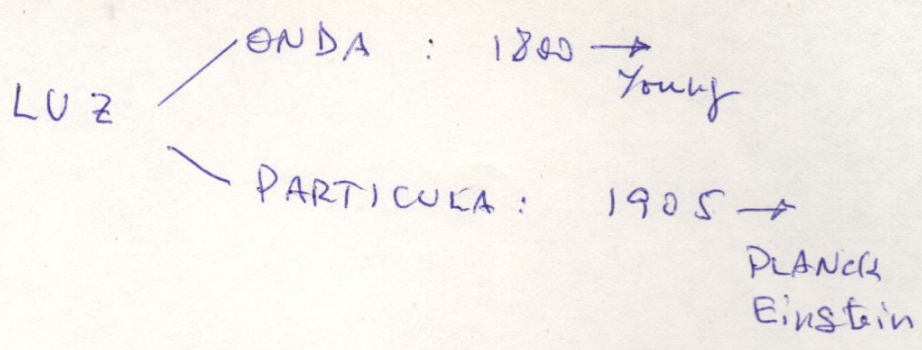 ONDA : 1800 →
Young
LUZ
PARTICULA : 1905 →
PLANCK
Einstein